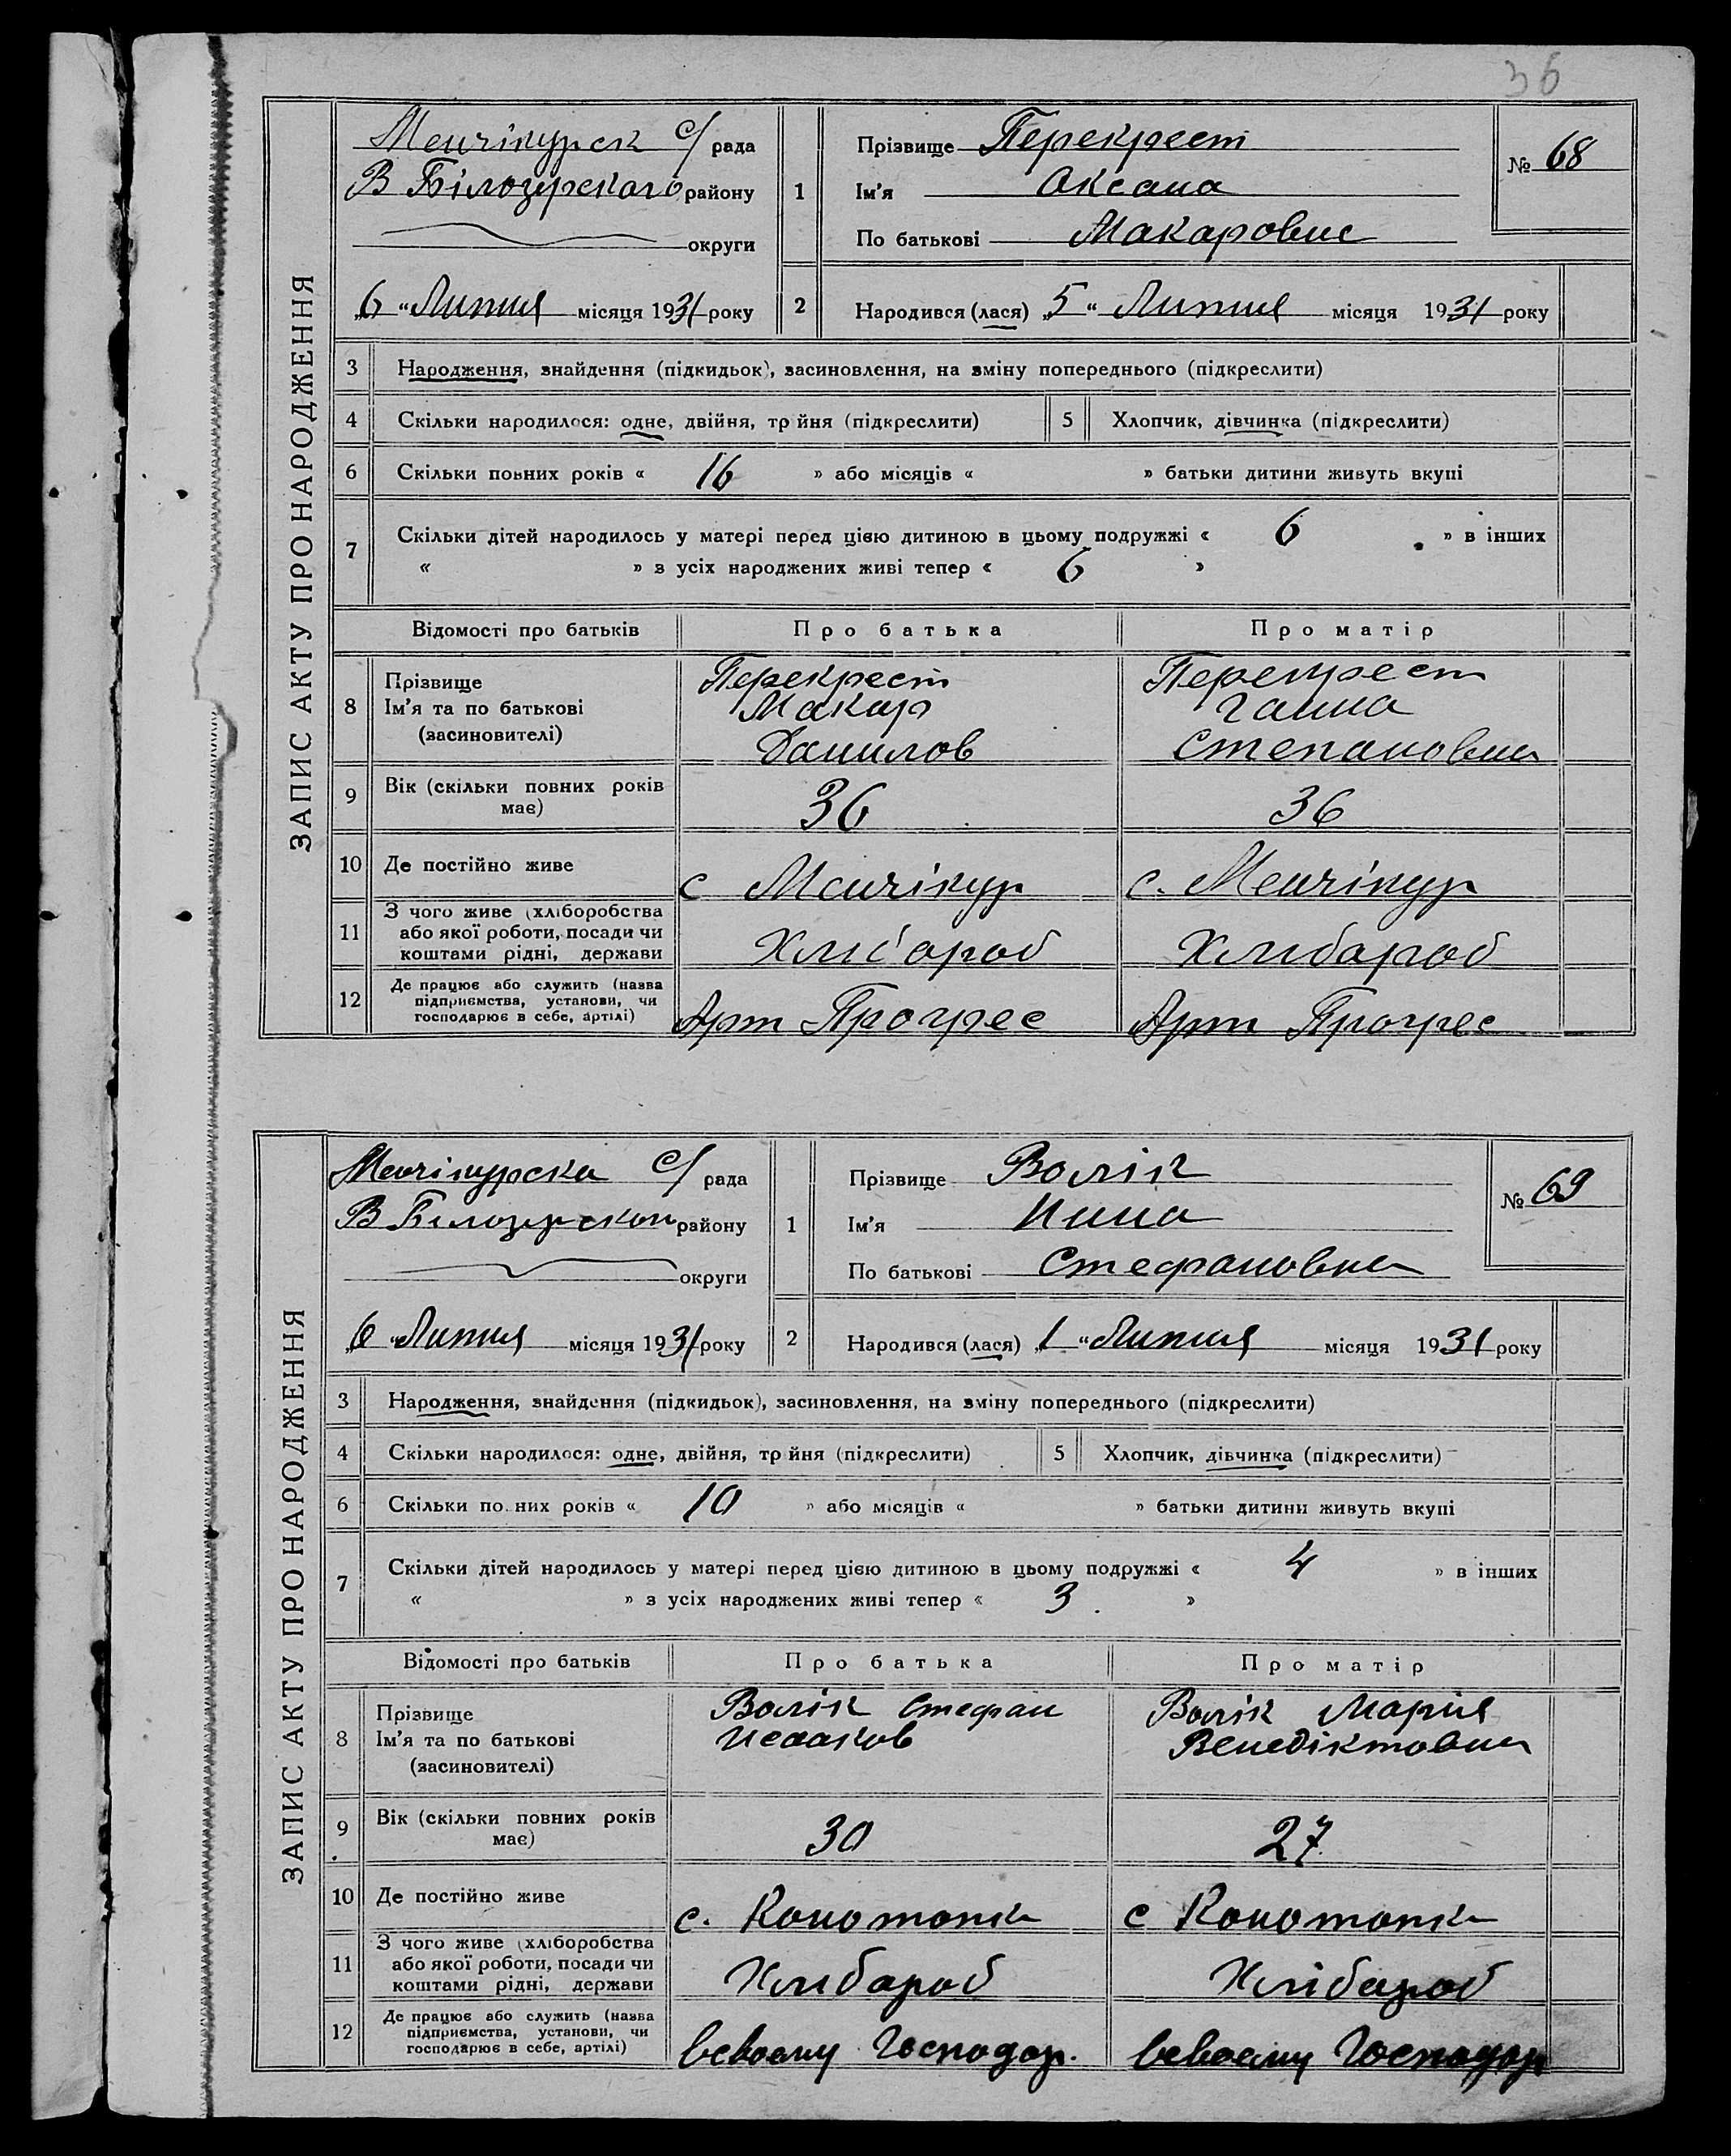 36
ЗАПИС АКТУ ПРО НАРОДЖЕННЯ
Менчікурск с/ рада
В Білозурского району
округи
„6“ Липня місяця 1931 року
1
Прізвище Перекрест
Ім'я Оксана
По батькові Макаровна
№ 68
2 Народився (лася) „5“ Липня місяця 1931 року
3 Народження, знайдення (підкидьок), засиновлення, на зміну попереднього (підкреслити)
4 Скільки народилося: одне, двійня, трійня (підкреслити) 5 Хлопчик, дівчинка (підкреслити)
6 Скільки повних років « 16 » або місяців « » батьки дитини живуть вкупі
7 Скільки дітей народилось у матері перед цією дитиною в цьому подружжі « 6 » в інших
« » з усіх народжених живі тепер « 6 »
Відомості про батьків Про батька Про матір
8 Прізвище Перекрест Перекрест
Ім'я та по батькові Макар Ганна
(засиновителі) Данилов Степановна
9 Вік (скільки повних років має) 36 36
10 Де постійно живе с Менчікур с. Менчікур
11 З чого живе (хліборобства
або якої роботи, посади чи
коштами рідні, держави Хлібороб Хлибароб
12 Де працює або служить (назва
підприємства, установи, чи
господарює в себе, артілі) Арт Прогрес Арт Прогрес
ЗАПИС АКТУ ПРО НАРОДЖЕННЯ
Менчікурска с/ рада
В Білозурског району
округи
„6“ Липня місяця 1931 року
1
Прізвище Волік
Ім'я Нина
По батькові Стефановна
№ 69
2 Народився (лася) „1“ Липня місяця 1931 року
3 Народження, знайдення (підкидьок), засиновлення, на зміну попереднього (підкреслити)
4 Скільки народилося: одне, двійня, трійня (підкреслити) 5 Хлопчик, дівчинка (підкреслити)
6 Скільки повних років « 10 » або місяців « » батьки дитини живуть вкупі
7 Скільки дітей народилось у матері перед цією дитиною в цьому подружжі « 4 » в інших
« » з усіх народжених живі тепер « 3 »
Відомості про батьків Про батька Про матір
8 Прізвище Волік Стефан Волік Мария
Ім'я та по батькові Исааков Венедіктовна
(засиновителі)
9 Вік (скільки повних років має) 30 27
10 Де постійно живе с. Конотопка с Конотопка
11 З чого живе (хліборобства
або якої роботи, посади чи
коштами рідні, держави Хлибароб Хлібароб
12 Де працює або служить (назва
підприємства, установи, чи
господарює в себе, артілі) всвоему Господар. всвоему Господар